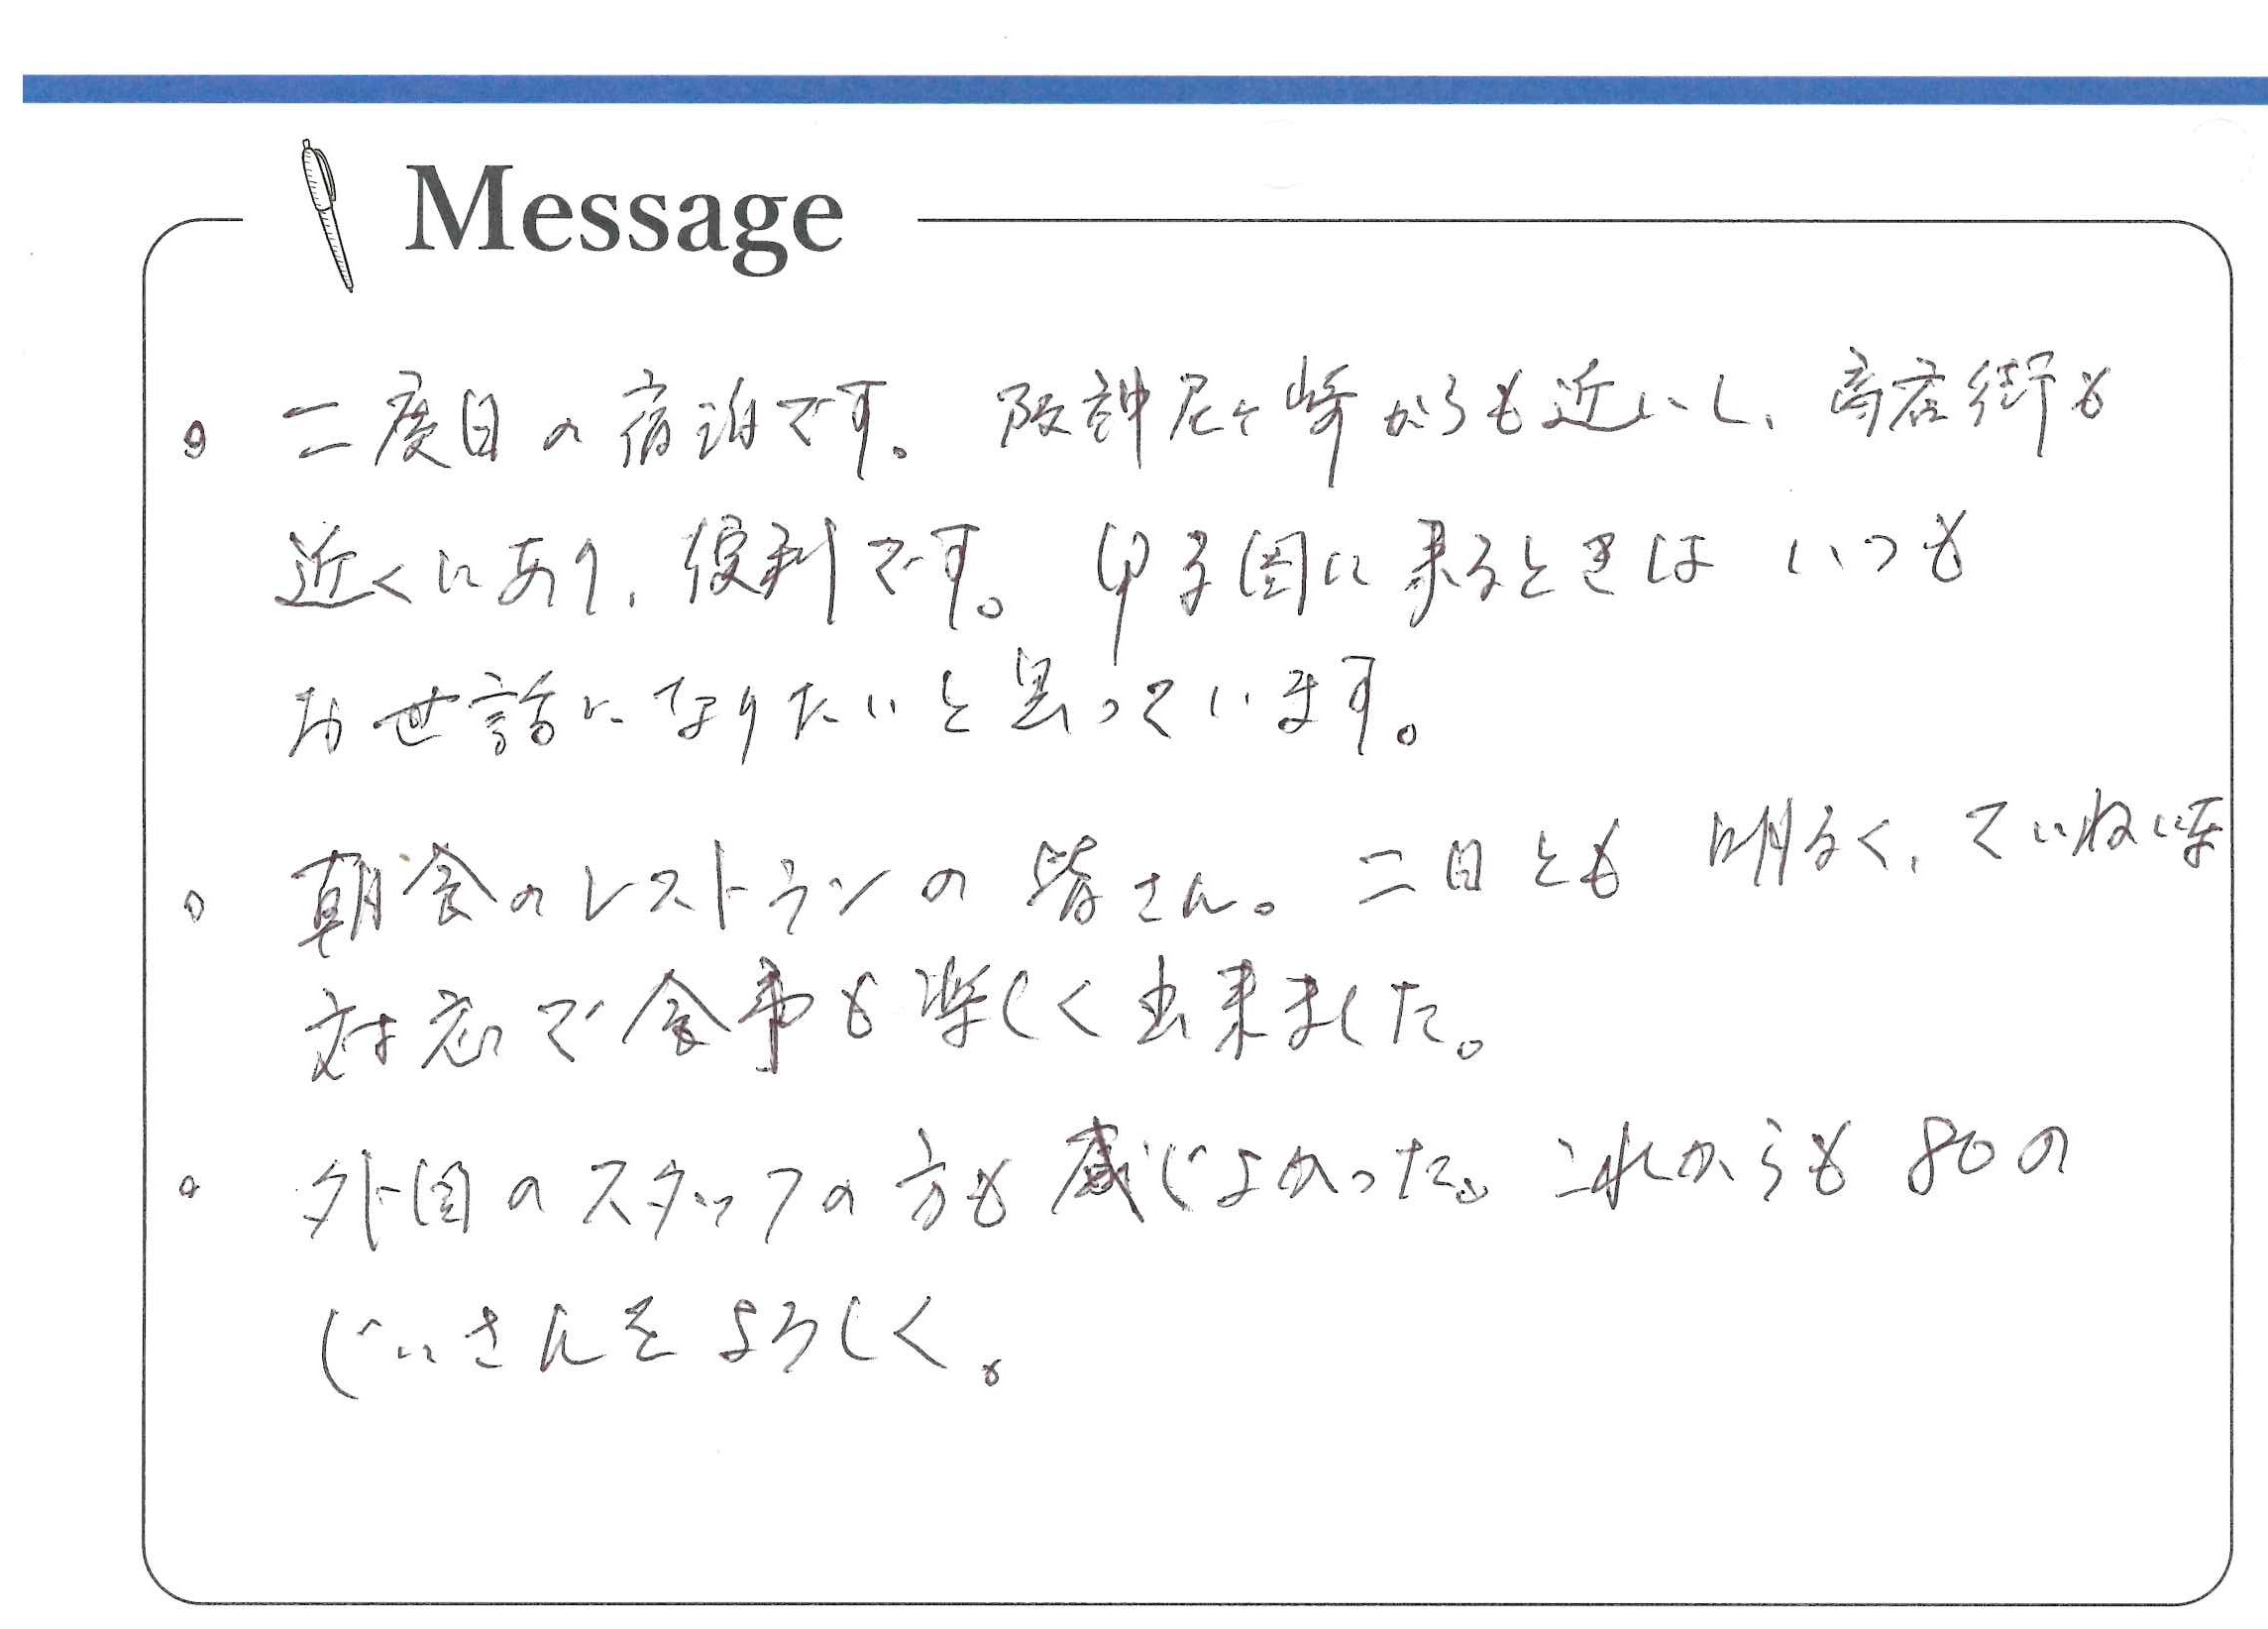 Message
。二度目の宿泊です。阪神尼ヶ崎からも近いし、商店街も
近くにあり、便利です。甲子園に来るときは いつも
お世話になりたいと思っています。
。朝食のレストランの皆さん。二日とも 明るく、ていねいな
対応で食事も楽しく出来ました。
。外国のスタッフの方も感じよかった。これからも 80の
じいさんをよろしく。